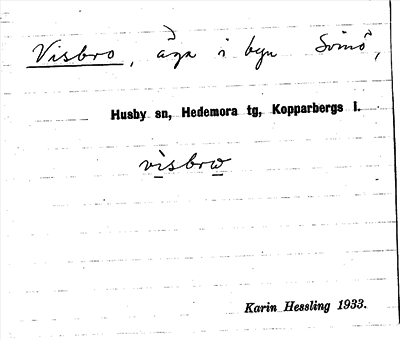 Visbro, äga i byn Svinö,
Husby sn, Hedemora tg, Kopparbergs l.
vìsbrω
Karin Hessling 1933.